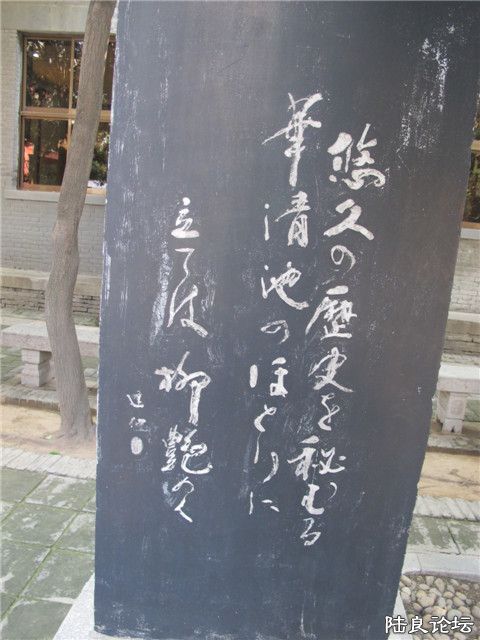 悠久の歴史を秘むる
華清池のほとりに
立てば柳艶めく
陆良论坛